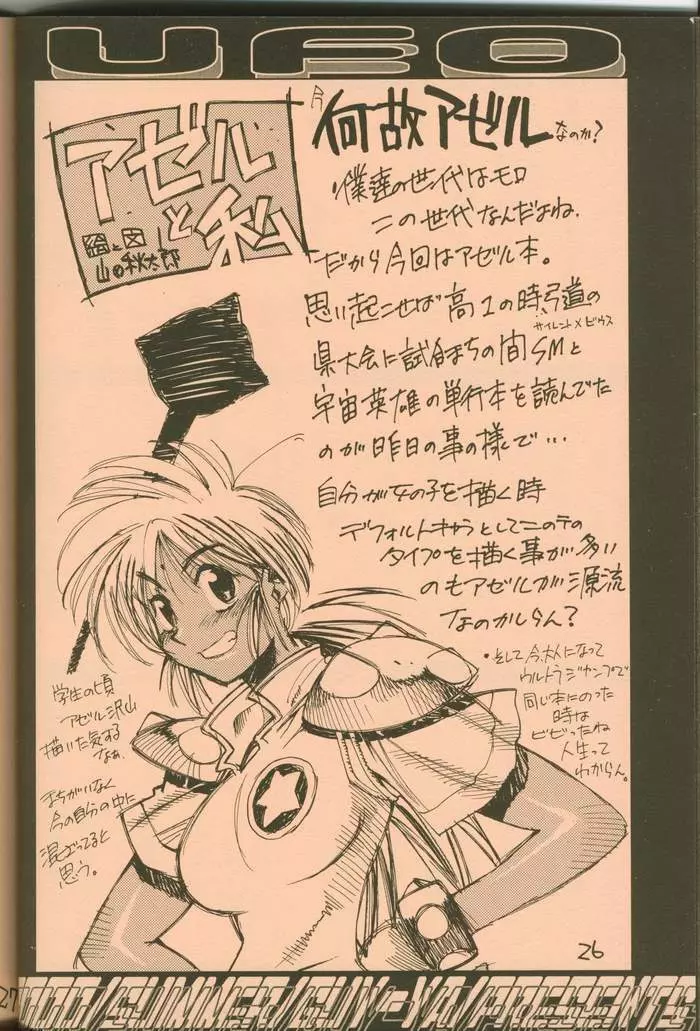 UFO
アゼル
と私
絵と図
山田秋太郎
今
何故アゼルなのか?
僕達の世代はモロ
この世代なんだよね、
だから今回はアゼル本。
思い起こせば高1の時弓道の
サイレントメビウス
県大会に試合まちの間SMと
宇宙英雄の単行本を読んでた
のが昨日の事の様で…
自分が女の子を描く時
デフォルトキャラとしてこのテの
タイプを描く事が多い
のもアゼルが源流
なのかしらん?
・そして今、大人になって
ウルトラジャンプで
同じ本にのった
時は
ビビったね
人生って
わからん。
学生の頃
アゼル沢山
描いた気する
なぁ、
まちがいなく
今の自分の中に
混ざってると
思う。
26
27
/SUMMER/GUY-YA/PRESENTS